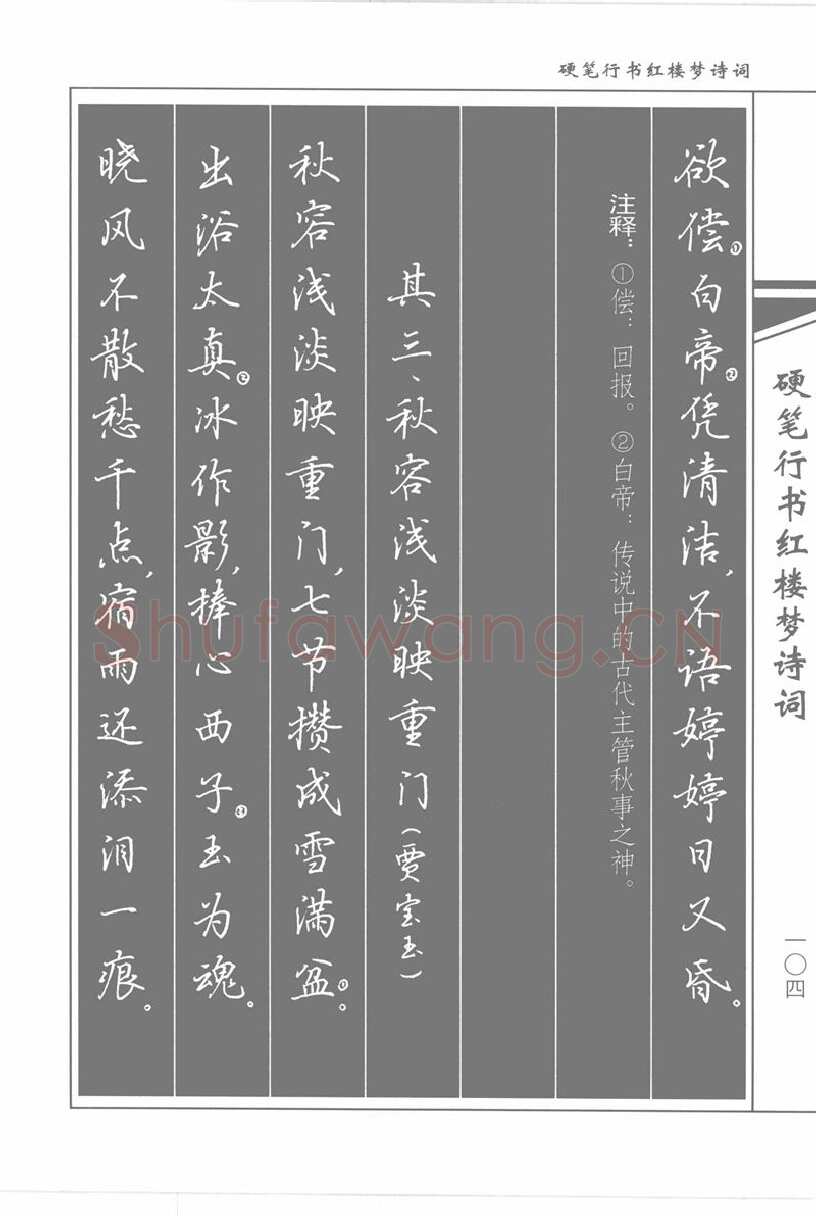 硬笔行书红楼梦诗词
欲偿①白帝②凭清洁,不语婷婷日又昏。
注释：①偿：回报。②白帝：传说中的古代主管秋事之神。
其三、秋容浅淡映重门(贾宝玉)
秋容浅淡映重门,七节攒成雪满盆①。
出浴太真②冰作影,捧心西子③玉为魂。
晓风不散愁千点,宿雨还添泪一痕。
硬笔行书红楼梦诗词
一〇四
Shufawang.CN